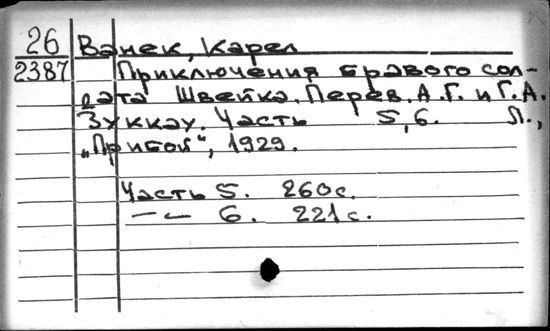 26 Ванек, Карел
2387 Приключения бравого сол-
дата Швейка. Перев. А.Г. и Г.А.
Зуккау. Часть 5,6. Л.,
„Прибой", 1929.
Часть 5. 260 с.
—"— 6. 221 с.